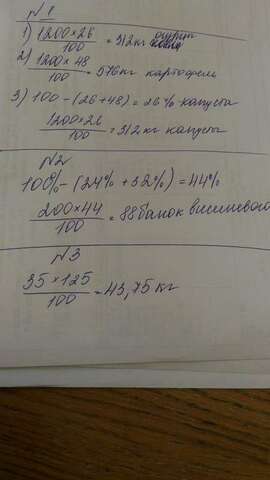 №1
1) 1200×26/100 = 312 кг огурцы
2) 1200×48/100 = 576 кг картофель
3) 100 - (26+48) = 26% капуста
1200×26/100 = 312 кг капусты
№2
100% - (24% + 32%) = 44%
200×44/100 = 88 банок вишневого
№3
35×125/100 = 43,75 кг